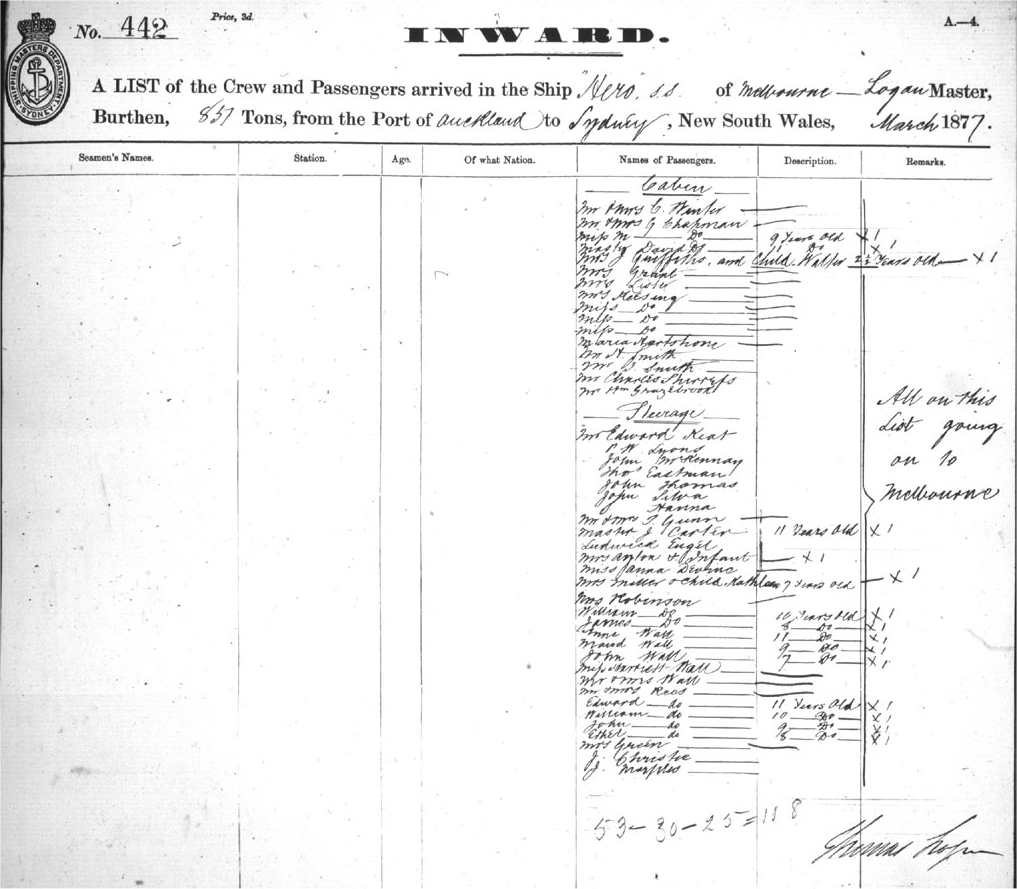 No. 442
Price, 3d.
A.—4.
SHIPPING MASTERS DEPARTMENT
INWARD.
A LIST of the Crew and Passengers arrived in the Ship "Hero" s.s. of Melbourne — Logan Master,
Burthen, Tons, from the Port of Auckland to Sydney, New South Wales, March 1877.
Seamen's Names. Station. Age. Of what Nation. Names of Passengers. Description. Remarks.
Cabin
Mr & Mrs C. Winter
Mr & Mrs G Chapman
Miss M — Do 9 Years Old X 1
Master David Do 11 Do X 1
Mrs J Griffiths, and Child Walter 2½ Years Old X 1
Mrs Grant
Mrs Lister
Mrs
Miss Do
Miss Do
Miss Do
Maria
H. Smith
Mr S. Smith
Mr Charles Shirrefs
Mr Grazebrook
Steerage
Mr Edward Keat
P W Lyons
John McKennay
Thos Eastman
John Thomas
John Silva
J Hanna
Mr & Mrs T. Gunn
Master J Carter 11 Years Old X 1
Ludwick Engel
Mrs & Infant X 1
Miss Anna
Mrs Miller & Child Kathleen 7 Years Old X 1
Mrs Robinson
William Do Years Old X 1
James Do 8 Do X 1
Anne Wall 11 Do X 1
Maud Wall 9 Do X 1
John Wall 7 Do X 1
Miss Harriett Wall
Mr & Mrs Wall
Mr & Mrs Rees
Edward do 11 Years Old X 1
William do 10 Do X 1
John do 9 Do X 1
Ethel do 8 Do X 1
Mrs Green
J. Christie
J. Marples
All on this
List going
on to
Melbourne
53 – 30 – 25 = 118
Thomas Logan